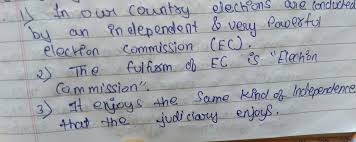 1) In our country elections are conducted
by an independent & very powerful
election commission (EC).
2) The fulform of EC is "Election
Commission".
3) It enjoys the same kind of Independence
that the judiciary enjoys.